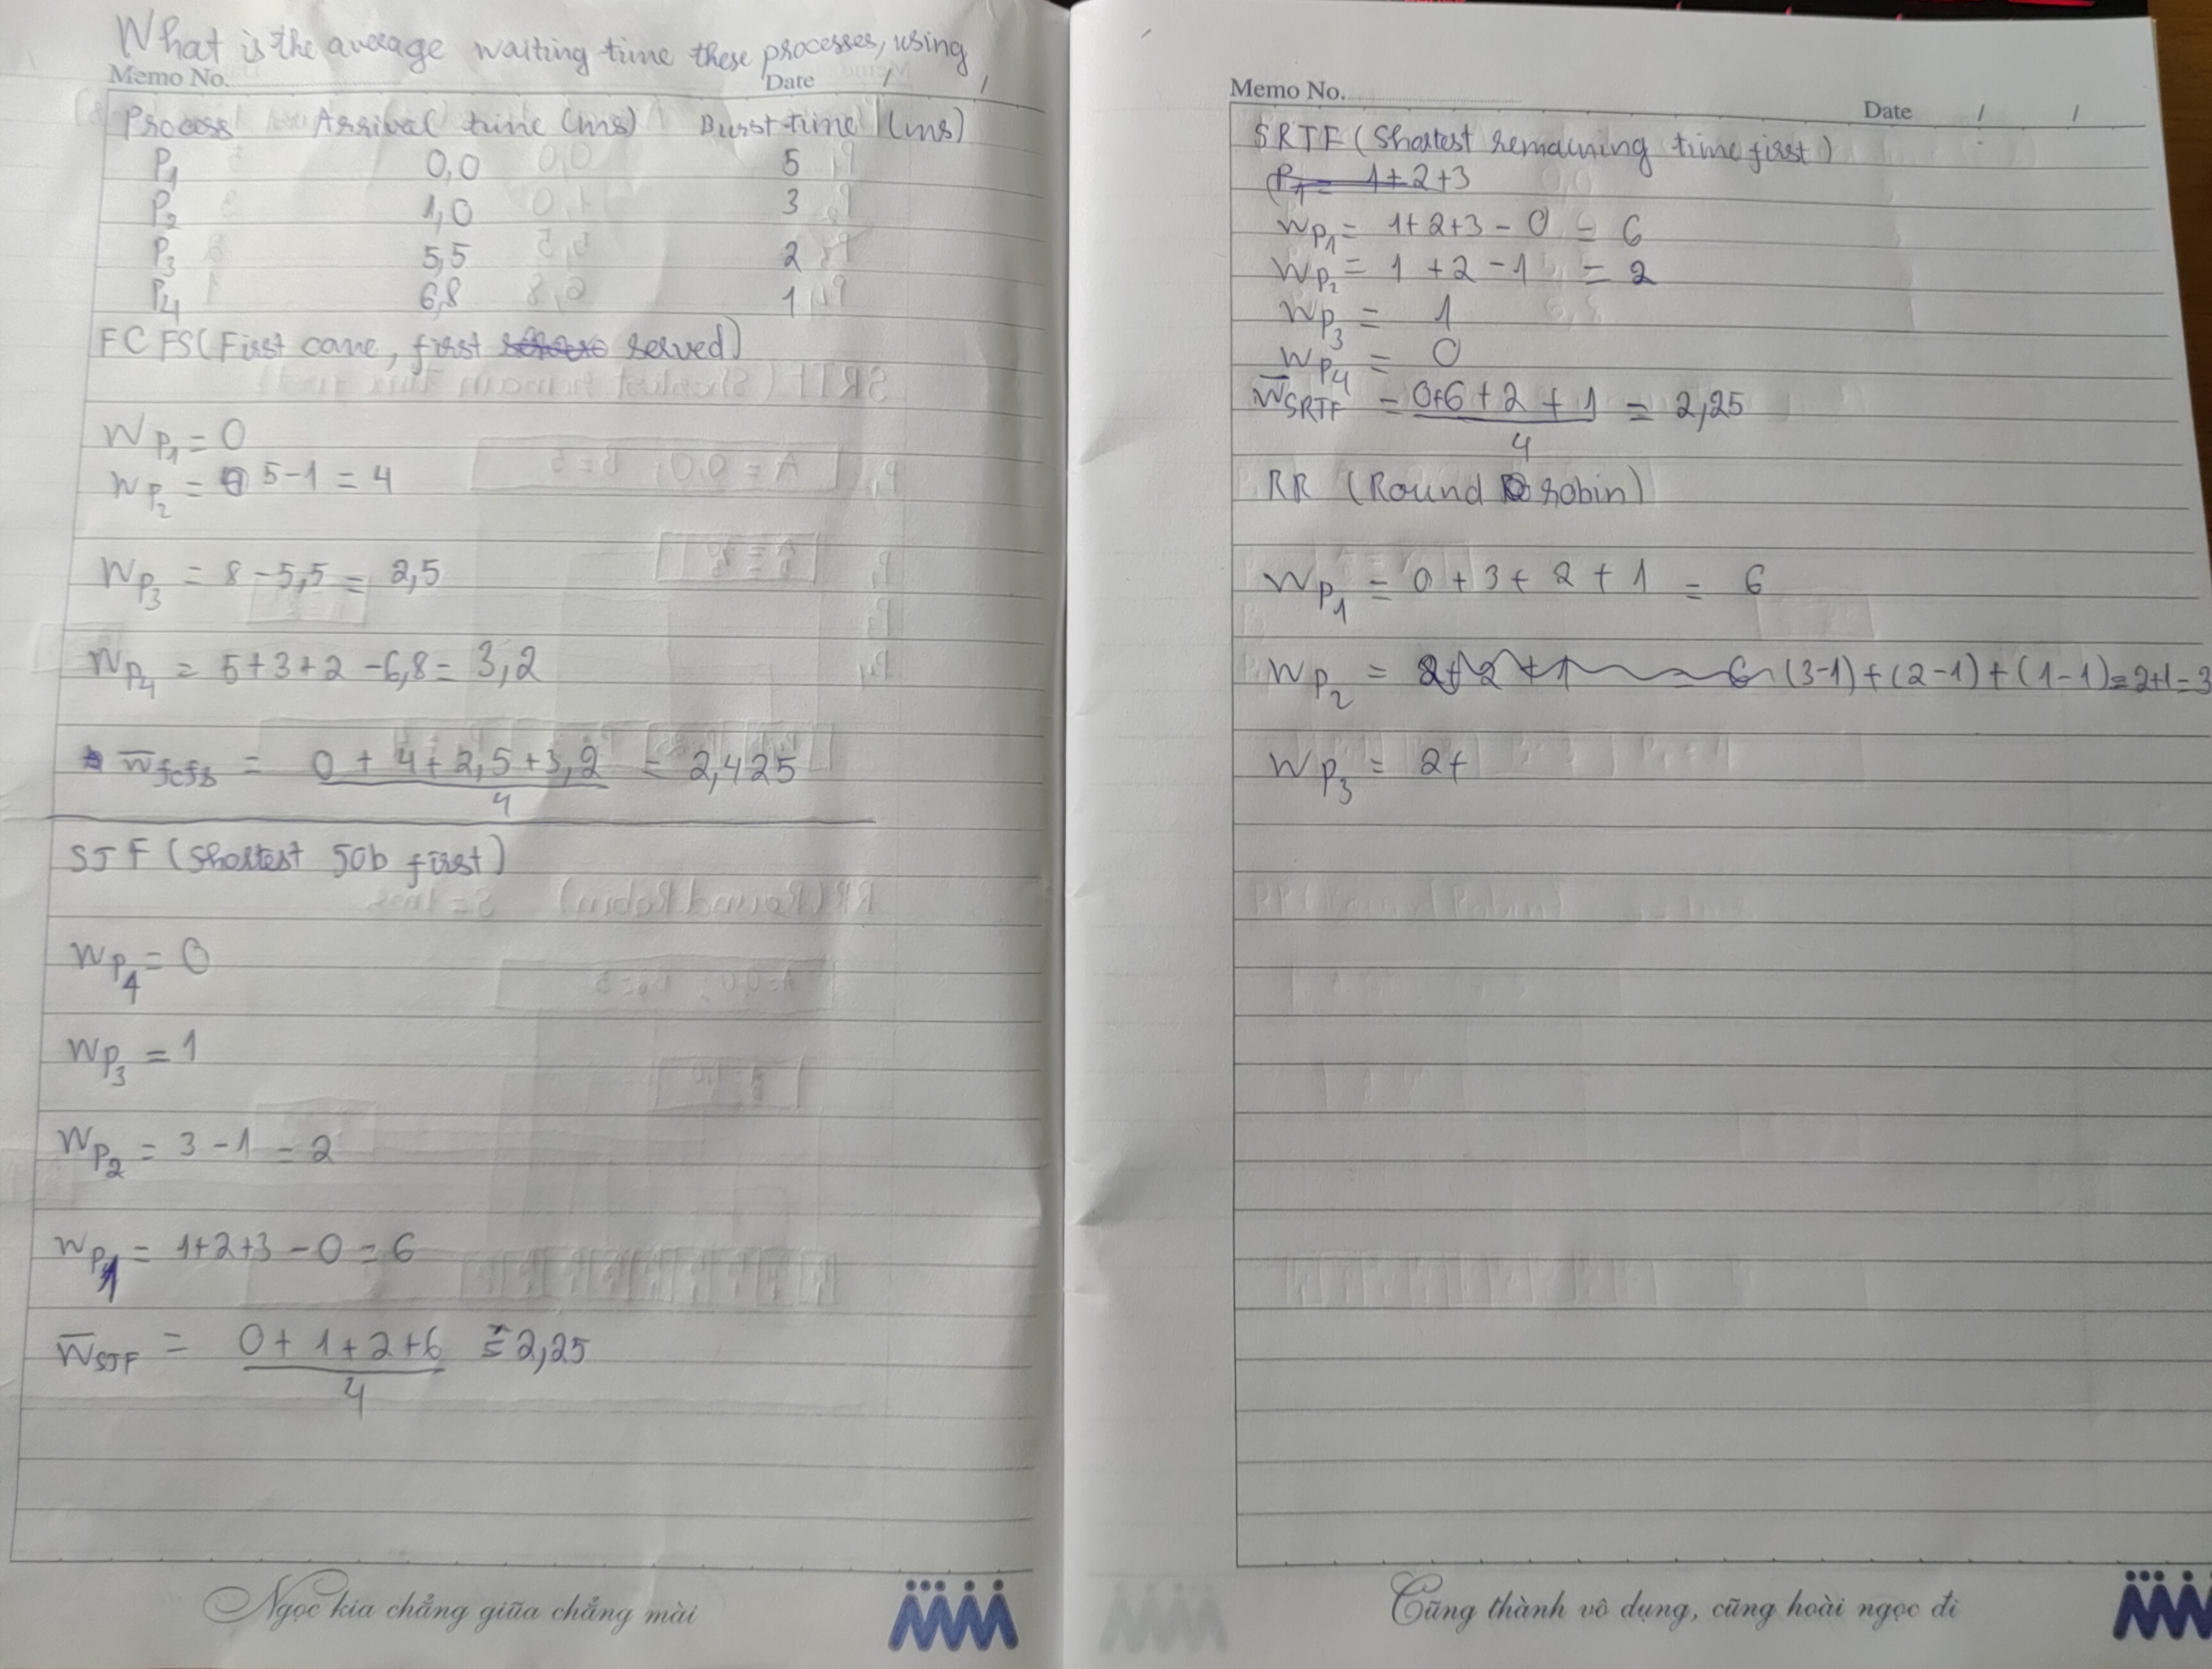 What is the average waiting time these processes, using
Memo No. Date / /
Process Arrival time (ms) Burst time (ms)
P1 0,0 5
P2 1,0 3
P3 5,5 2
P4 6,8 1
FCFS (First came, first served)
WP1 = 0
WP2 = 5-1 = 4
WP3 = 8 - 5,5 = 2,5
WP4 = 5+3+2 -6,8 = 3,2
W̅fcfs = 0 + 4 + 2,5 + 3,2 = 2,425
4
SJF (Shortest Job first)
WP4 = 0
WP3 = 1
WP2 = 3 - 1 = 2
WP1 = 1+2+3 - 0 = 6
W̅SJF = 0 + 1 + 2 + 6 = 2,25
4
Ngọc kia chẳng giũa chẳng mài
Memo No. Date / /
SRTF (Shortest remaining time first)
P1 = 1+2+3
WP1 = 1+2+3 - 0 = 6
WP2 = 1 + 2 - 1 = 2
WP3 = 1
WP4 = 0
W̅SRTF = 0+6 + 2 + 1 = 2,25
4
RR (Round robin)
WP1 = 0 + 3 + 2 + 1 = 6
WP2 = 2+2+1 = 6 (3-1)+(2-1)+(1-1)=2+1=3
WP3 = 2+
Cũng thành vô dụng, cũng hoài ngọc đi